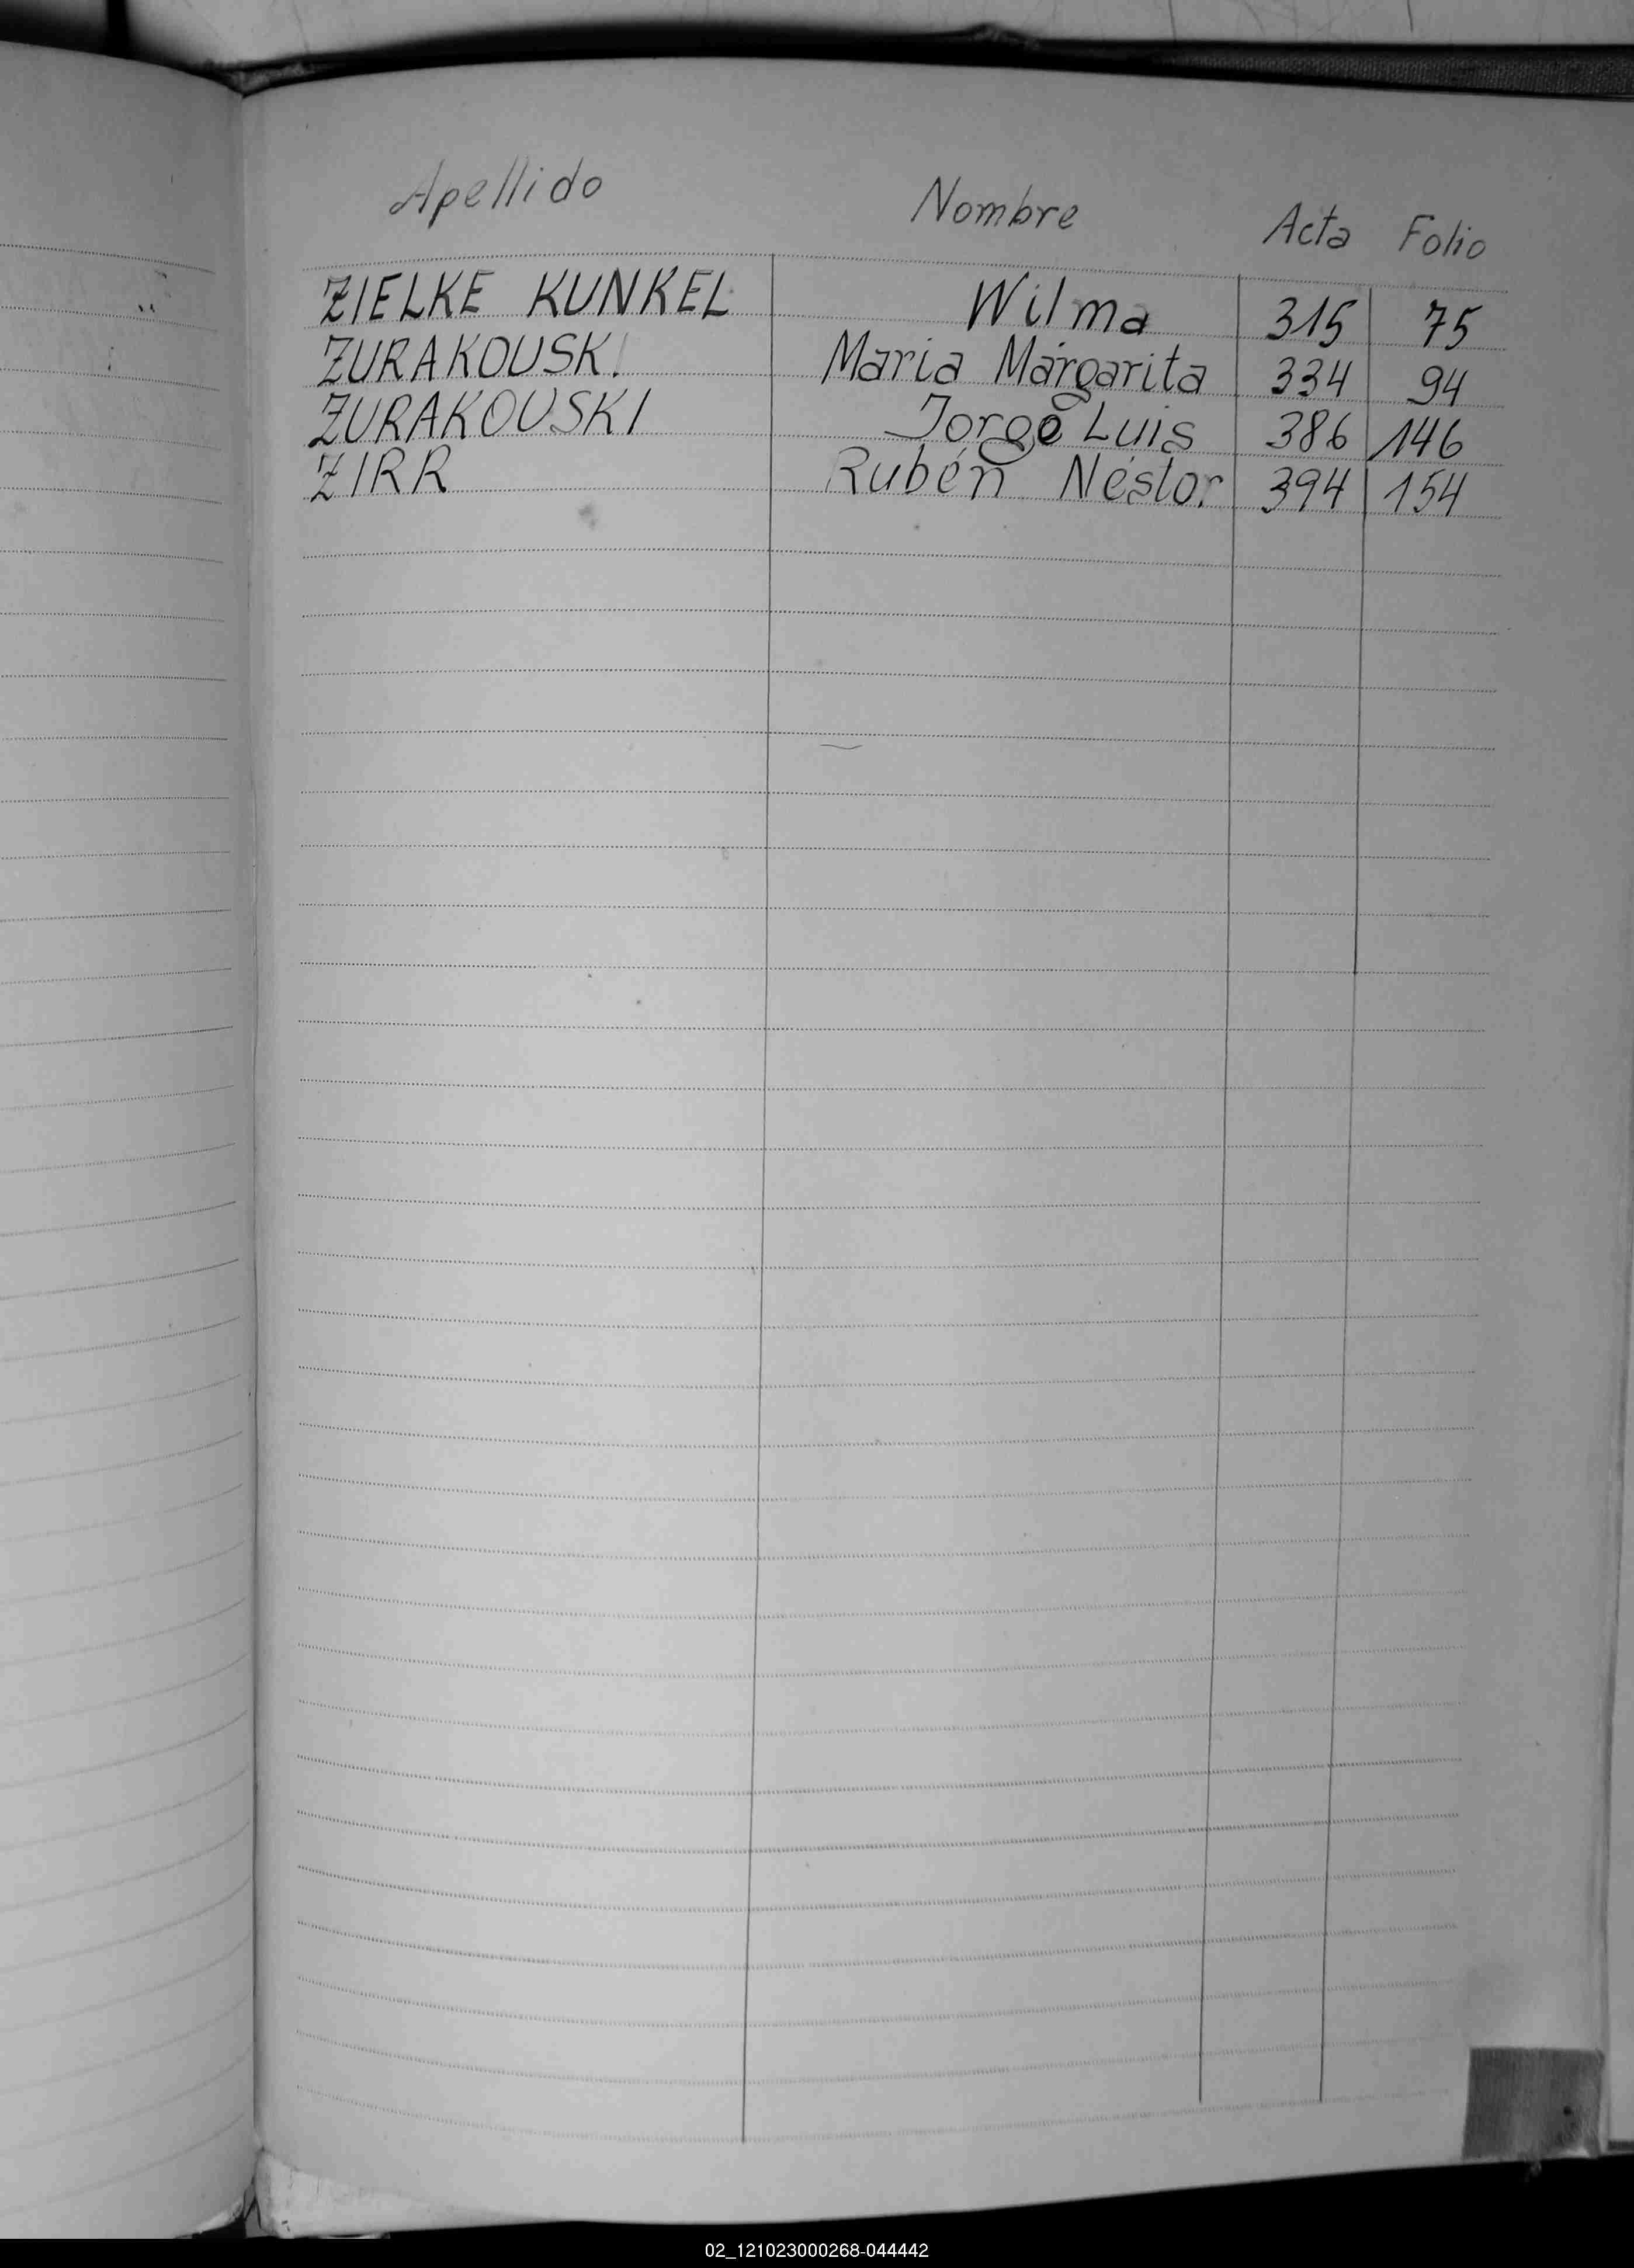 Apellido Nombre Acta Folio
ZIELKE KUNKEL Wilma 315 75
ZURAKOUSKI Maria Margarita 334 94
ZURAKOUSKI Jorge Luis 386 146
ZIRR Rubén Néstor 394 154
02_121023000268-044442